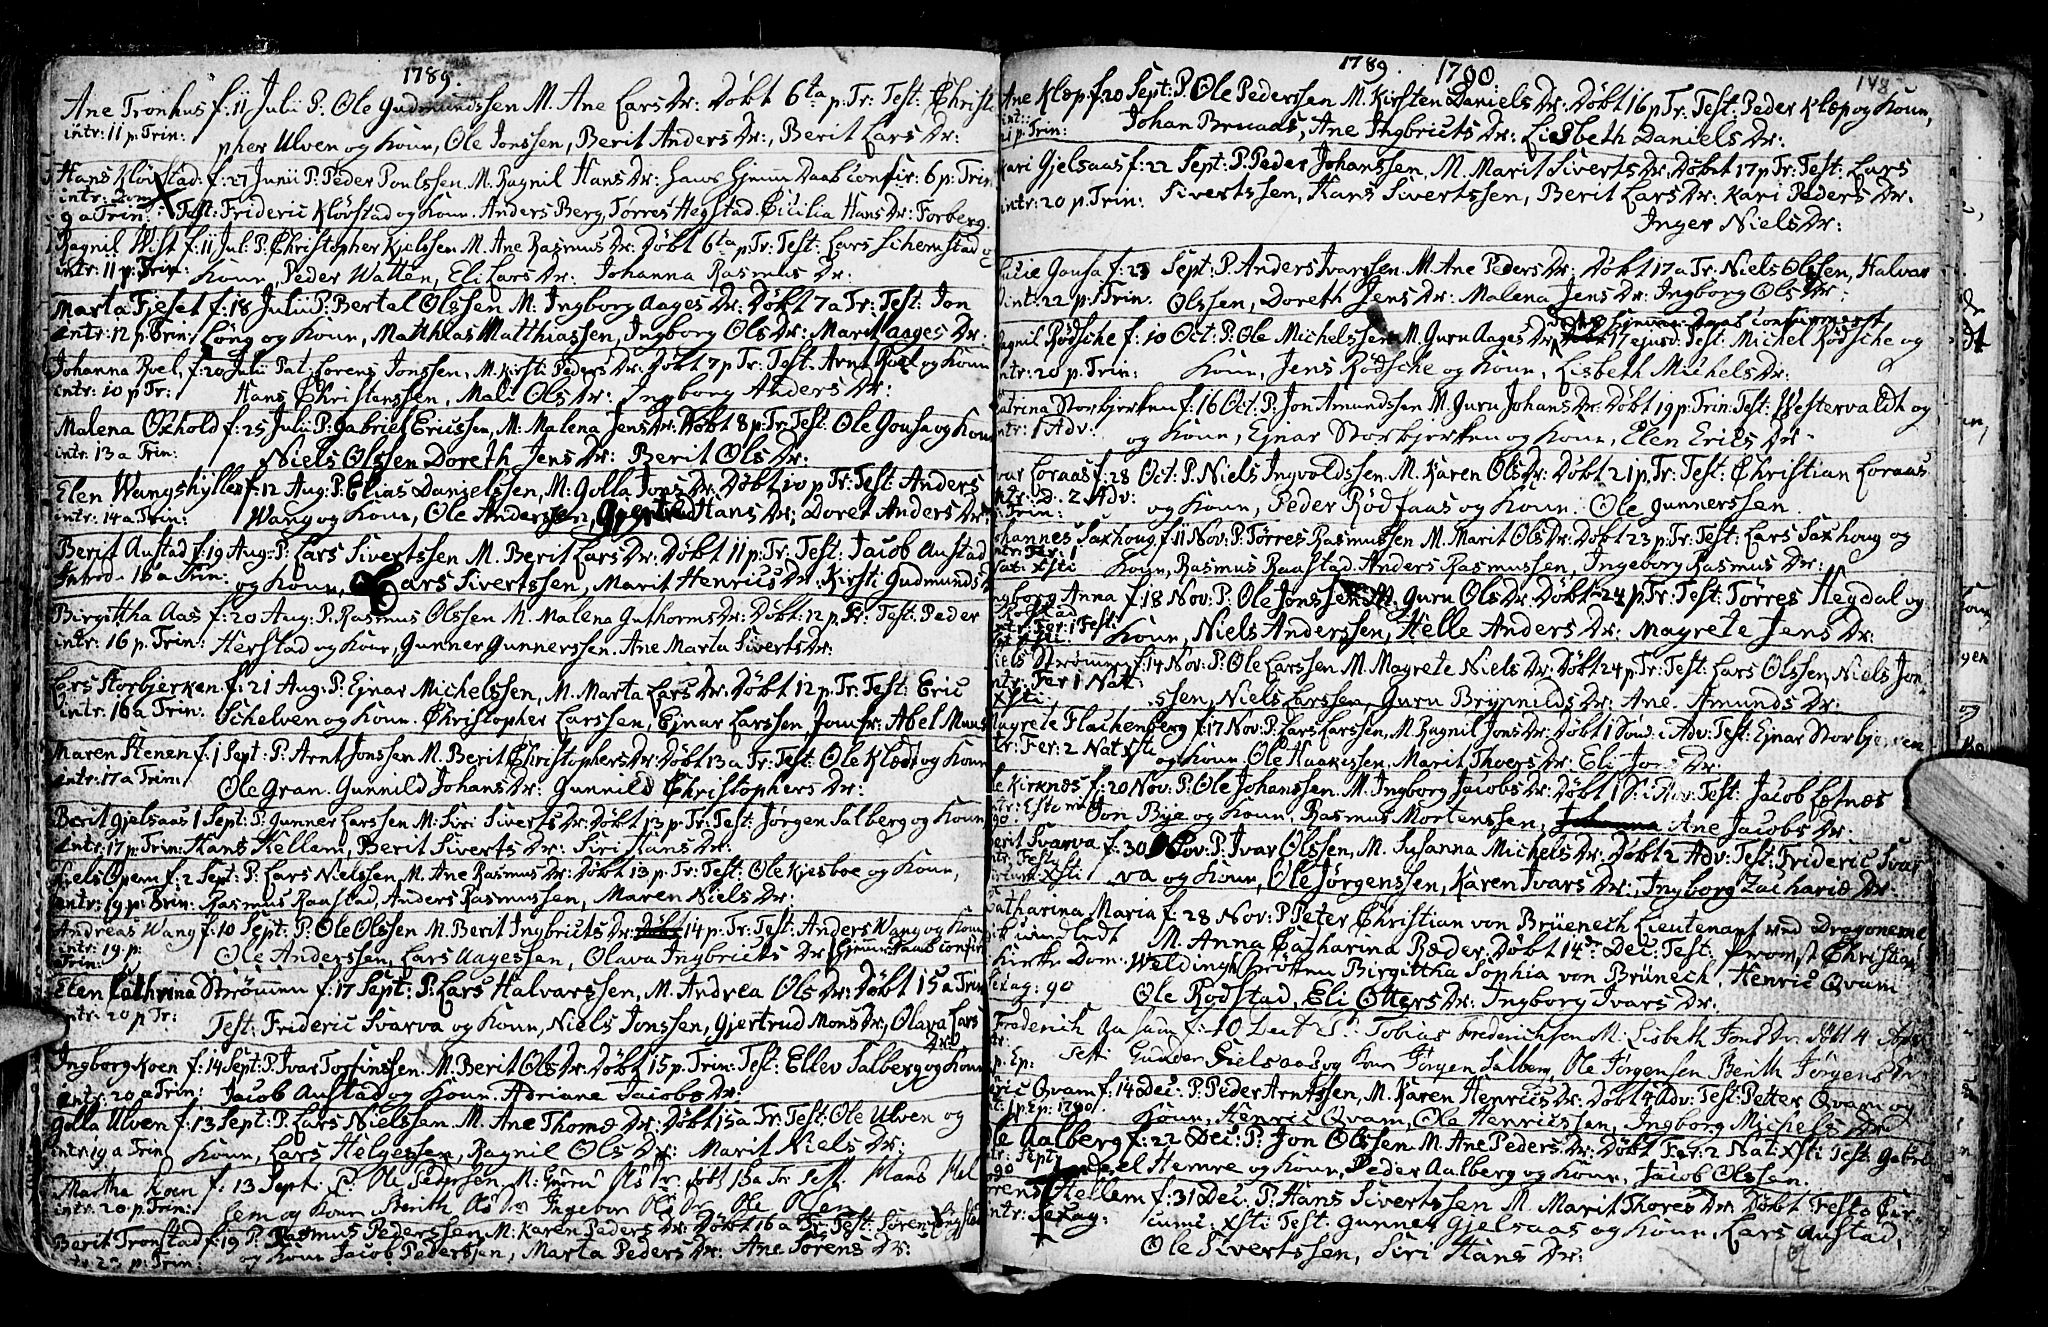 1789
Ane Tronhus f: 11 Julii P. Ole Gudmundssen M. Ane Lars Dr: Døbt 6ta p: Tr: Test: Christo
intr: 11 p: Trin: pher Ulven og Koun, Ole Jonssen, Berit Anders Dr:, Berit Lars Dr:
Hans Kløvstad f: 27 Junii P: Peder Poulssen. M. Ragnil Hans Dr: havs Hjemme Daab confir: 6 p: Trin
intr: Dom
9 a Trin: Test: Frideric Kløvstad og Koun. Anders Berg, Tørres Hegstad. Cicilia Hans Dr: Forberg
Ragnil Wist f: 11 Jul: P. Christopher Kjelssen M. Ane Rasmus Dr: Døbt 6ta p Tr: Test: Lars Schemstad og
intr: 11 p: Trin: Koun, Peder Watten, Eli Lars Dr: Johanna Rasmus Dr:
Marta Fieset f: 18 Julii P: Bertal Olssen M. Ingborg Aages Dr: Døbt 7 a Tr: Test: Jon
intr: 12 p: Trin: Løng og Koun, Mathias Matthiassen, Ingborg Ols Dr: Marit Aages Dr:
Johanna Roel, f: 20 Julii Pat: Lorens Jonssen, M. Kirsti Peders Dr: Døbt 7 p Tr: Test: Arnt Roel og Koun
intr: 10 p Tr: Hans Christenssen, Mali Ols Dr: Ingborg Anders Dr:
Malena Oxhold f: 25 Julii P: Gabriel Ericssen, M. Malena Jens Dr: Døbt 8 p: Tr: Test: Ole Gousa og Koun
intr: 13 a Trin: Niels Olssen Doreth Jens Dr: Berit Ols Dr:
Elen Wangshyllen f: 12 Aug: P: Elias Danielssen, M: Golla Jons Dr: Døbt 10 p Tr: Test: Anders
intr: 14 a Trin: Wang og Koun, Ole Anderssen, Gjertrud Hans Dr; Doret Anders Dr:
Berit Austad f: 19 Aug: P: Lars Sivertssen M. Berit Lars Dr: Døbt 11 p: Tr: Test: Jacob Austad
Introd. 15 a Trin: og Koun, Lars Sivertssen, Marit Henrics Dr: Kirsti Gudmunds Dr
Birgittha Aas f: 20 Aug: P. Rasmus Olssen M. Malena Guthorms Dr: Døbt: 12 p. Tr: Test: Peder
intr: 16 p: Trin: Herstad og Koun, Gunner Gunnerssen. Ane Marta Siverts Dr:
Lars Storbjerken f: 21 Aug: P: Ejnar Michelssen, M. Marta Lars Dr: Døbt 12 p: Tr: Test: Eric
intr: 16 a Trin: Schelven og Koun. Christopher Larssen, Ejnar Larssen, Jomfr: Abel Muus
Maren Stenen f: 1 Sept: P. Arnt Jonssen M. Berit Christophers Dr: Døbt 13 a Tr: Test: Ole Klædt og Koun
intr: 17 a Trin: Ole Gran. Gunnild Johans Dr: Gunnild Christophers Dr:
Berit Gjelsaas 1 Sept: P: Gunner Larssen M. Siri Siverts Dr: Døbt 13 p: Tr: Test: Jørgen Salberg og Koun
intr: 17 p: Trin: Hans Hellem, Berit Siverts Dr: Siri Hans Dr:
Niels Opem f: 2 Sept: P. Lars Nielssen, M. Ane Rasmus Dr: Døbt 13 p: Tr: Test: Ole Kjesboe og Koun,
intr: 19 p: Trin: Rasmus Raastad, Anders Rasmussen, Maren Niels Dr:
Andreas Wang f: 10 Sept: P. Ole Olssen M. Berit Ingbricts Dr: Døbt 14 p: Tr: Test: Anders Wang og Koun
intr: 19. p:
Trin: Ole Anderssen, Lars Aagessen, Olava Ingbricts Dr: Hjemme Daab confir
Elen Cathrina Strømen f: 17 Sept: P: Lars Halvarssen, M. Andrea Ols Dr: Døbt 15 a Trin
intr: 20 p Tr: Test: Frideric Svarva og Koun, Niels Jonssen, Gjertrud Mons Dr:, Olava Lars
Dr:
Ingborg Koen f: 14 Sept: P. Ivar Torfinssen. M. Berit Ols Dr: Døbt 15 p: Trin: Test: Ellev Salberg og Koun
intr: 20 a Trin: Jacob Austad og Koun. Adriane Jacobs Dr:
Golla Ulven f: 13 Sept: P. Lars Nielssen. M. Ane Thomæ Dr: Døbt 15 a Tr: Test: Ole Ulven og
intr: 19 a Trin: Koun, Lars Helgessen, Ragnil Ols Dr: Marit Niels Dr:
Martha Koen f: 13 Sept: P: Ole Pedersen, M: Guru Ols Dr: døbt 15 a Tr: Test: Hans Hel
intr: 20 p: Trin: lem og Koun Berith Ols Dr Ingebor Ols Dr Ole Olsen
Berit Tronstad f: 19 P. Rasmus Pederssen, M: Karen Peders Dr: Døbt 16 a Tr: Test: Søren
intr: 20 p: Trin: og Koun Jacob Pederssen, Marta Peders Dr: Ane Sørens Dr:
1789. 1790. 148
Ane Klæp f. 20 Sept: P. Ole Pederssen M. Kirsten Daniels Dr: Døbt 16 p Tr: Test: Peder Klæp og Koun,
p: Trin: Johan Bruaas, Ane Ingbricts Dr: Liesbeth Daniels Dr:
Kari Gjelsaas f: 22 Sept: P. Peder Johanssen, M. Marit Siverts Dr. Døbt 17 p Tr: Test: Lars
intr: 20 p. Trin: Sivertssen, Hans Sivertssen, Berit Lars Dr: Kari Peders Dr.
Inger Niels Dr:
Julie Gousa f: 23 Sept: P. Anders Ivarssen. M. Ane Peders Dr: Døbt 17 a Tr: Niels Olssen, Halvar
intr: 22 p: Trin. Olssen, Doreth Jens Dr: Malena Jens Dr: Ingborg Ols Dr:
dets Hjemme Daab confirmeret
Ragnil Rødsche f: 10 Oct: P. Ole Michelssen M. Guru Aages Dr: Døbt 17 ejusd: Test: Michel Rødsche og
intr: 20 p. Trin: Koun, Jens Rødsche og Koun, Lisbeth Michels Dr:
Catrina Storbjerken f: 16 Oct: P. Jon Amundssen M. Guru Johans Dr: Døbt 19 p: Trin: Test: Westervaldt og
intr: 1 Adv. og Koun, Ejnar Storbjerken og Koun, Elen Erics Dr.
Ivar Loraas f: 28 Oct: P. Niels Ingvoldssen. M. Karen Ols Dr: Døbt 21 p: Tr: Test: Christian Loraas
intr: D. 2 Adv: og Koun, Peder Rødfaas og Koun. Ole Gunnerssen.
Johannes Saxhoug f: 11 Nov: P. Tørres Rasmussen M. Marit Ols Dr: Døbt 23 p: Tr: Test: Lars Saxhoug og
intr: Fer: 1
Nat: Xsti Koun, Rasmus Raastad. Anders Rasmussen, Ingeborg Rasmus Dr:
Ingborg Anna f: 18 Nov: P. Ole Jonssen. M. Guru Ols Dr: Døbt 24 p: Tr: Test: Tørres Heydal og
intr: Fer: 1 Festi Koun, Niels Anderssen, Helle Anders Dr: Magrete Jens Dr:
Niels Strømmen f: 14 Nov: P: Ole Larssen M. Magrete Niels Dr: Døbt 24 p: Tr: Test: Lars Olssen, Niels Jon-
intr: Fer 1 Nat:
Xsti: ssen, Niels Larssen, Guru Brynnilds Dr: Ane Amunds Dr:
Magrete Flachenberg f: 17 Nov: P. Lars Larssen, M. Ragnil Jons Dr: Døbt 1 Sønd: i Adv: Test: Ejnar Storbjerken
intr: Fer: 2 Nat Xsti og Koun. Ole Haakessen, Marit Thores Dr: Eli Jons Dr:
Ole Kirknæs f: 20 Nov: P. Ole Johanssen. M. Ingborg Jacobs Dr: Døbt 1 S: i Adv: Test: Jacob Letnæs
intr: Jon Bye og Koun, Rasmus Mortenssen, Johanna Ane Jacobs Dr:
Berit Svarva f: 30 Nov: P. Ivar Olssen, M. Susanna Michels Dr: Døbt 2 Adv: Test: Frideric Svar
va og Koun, Ole Jørgenssen, Karen Ivars Dr:, Ingborg Zachariæ Dr:
Catharina Maria f: 28 Nov: P Peter Christian von Brüenech Lieutenant ved Dragonerne
M. Anna Catharina Ræder, Døbt 14de Dec: Test: Provst Christian
Kirke Dom. Weldingh Frøken Birgittha Sophia von Brünech, Henric Qvam
Sexag: 90 Ole Rodstad, Eli Otters Dr: Ingborg Ivars Dr:
Frederich f: 10 Dec: P: Tobias Frederichsen M: Lisbeth Jons Dr døbt 4
p: Ep: Test: Gunder Gielsaas og Koun Jørgen Salberg, Ole Jørgensen Berith Jørgens Dr
Eric Qvam f: 14 Dec: P. Peder Arntssen, M. Karen Henrics Dr: Døbt 4 Adv: Test: Petter Qvam og
1 p: Ep: 1790. Koun, Henric Qvam, Ole Henricssen, Ingborg Michels Dr
Ole Aalberg f: 22 Dec: P. Jon Olssen M. Ane Peders Dr: Døbt Fer: 2 Nat: Xsti Test: Gabri-
intr: Sept
90 el Hemre og Koun, Peder Aalberg og Koun, Jacob Olssen.
Lorens Hellem f: 31 Dec: P. Hans Sivertssen M. Marit Thores Dr: Døbt Festo Cir-
intr: Sexag: cumc: Xsti Test: Gunner Gjelsaas og Koun, Lars Austad,
Ole Sivertssen, Siri Hans Dr: